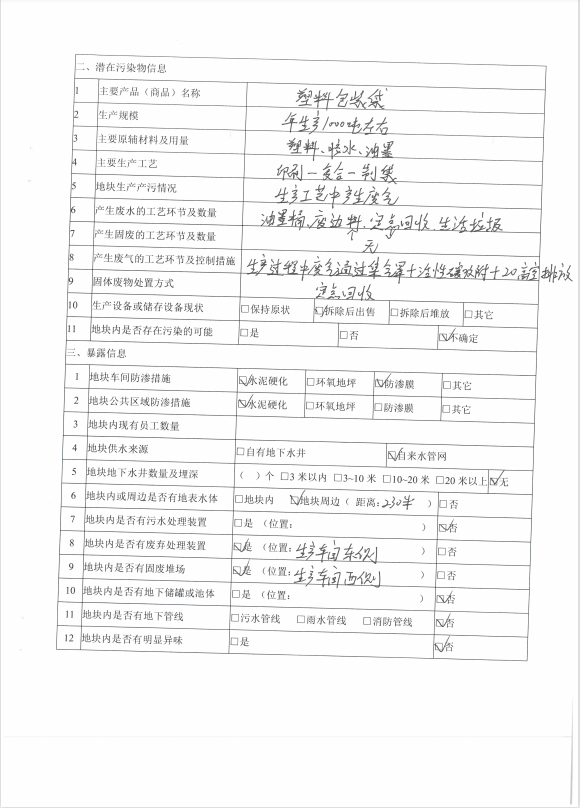 二、潜在污染物信息
1 主要产品（商品）名称 塑料包装袋
2 生产规模 年生产1000吨左右
3 主要原辅材料及用量 塑料、胶水、油墨
4 主要生产工艺 印刷一复合一制袋
5 地块生产产污情况 生产工艺中产生废气
6 产生废水的工艺环节及数量 油墨桶、废边料、定点回收、生活垃圾
7 产生固废的工艺环节及数量 个 无
8 产生废气的工艺环节及控制措施 生产过程中废气通过集气罩+活性碳吸附+20高空排放
9 固体废物处置方式 定点回收
10 生产设备或储存设备现状 □保持原状 ☑拆除后出售 □拆除后堆放 □其它
11 地块内是否存在污染的可能 □是 □否 ☑不确定
三、暴露信息
1 地块车间防渗措施 ☑水泥硬化 □环氧地坪 ☑防渗膜 □其它
2 地块公共区域防渗措施 ☑水泥硬化 □环氧地坪 □防渗膜 □其它
3 地块内现有员工数量
4 地块供水来源 □自有地下水井 ☑自来水管网
5 地块地下水井数量及埋深 （ ）个 □3米以内 □3~10米 □10~20米 □20米以上 ☑无
6 地块内或周边是否有地表水体 □地块内 ☑地块周边（ 距离：230米 ） □否
7 地块内是否有污水处理装置 □是（位置： ） ☑否
8 地块内是否有废弃处理装置 ☑是（位置：生产车间东侧 ） □否
9 地块内是否有固废堆场 ☑是（位置：生产车间西侧 ） □否
10 地块内是否有地下储罐或池体 □是（位置： ） ☑否
11 地块内是否有地下管线 □污水管线 □雨水管线 □消防管线 ☑否
12 地块内是否有明显异味 □是 ☑否